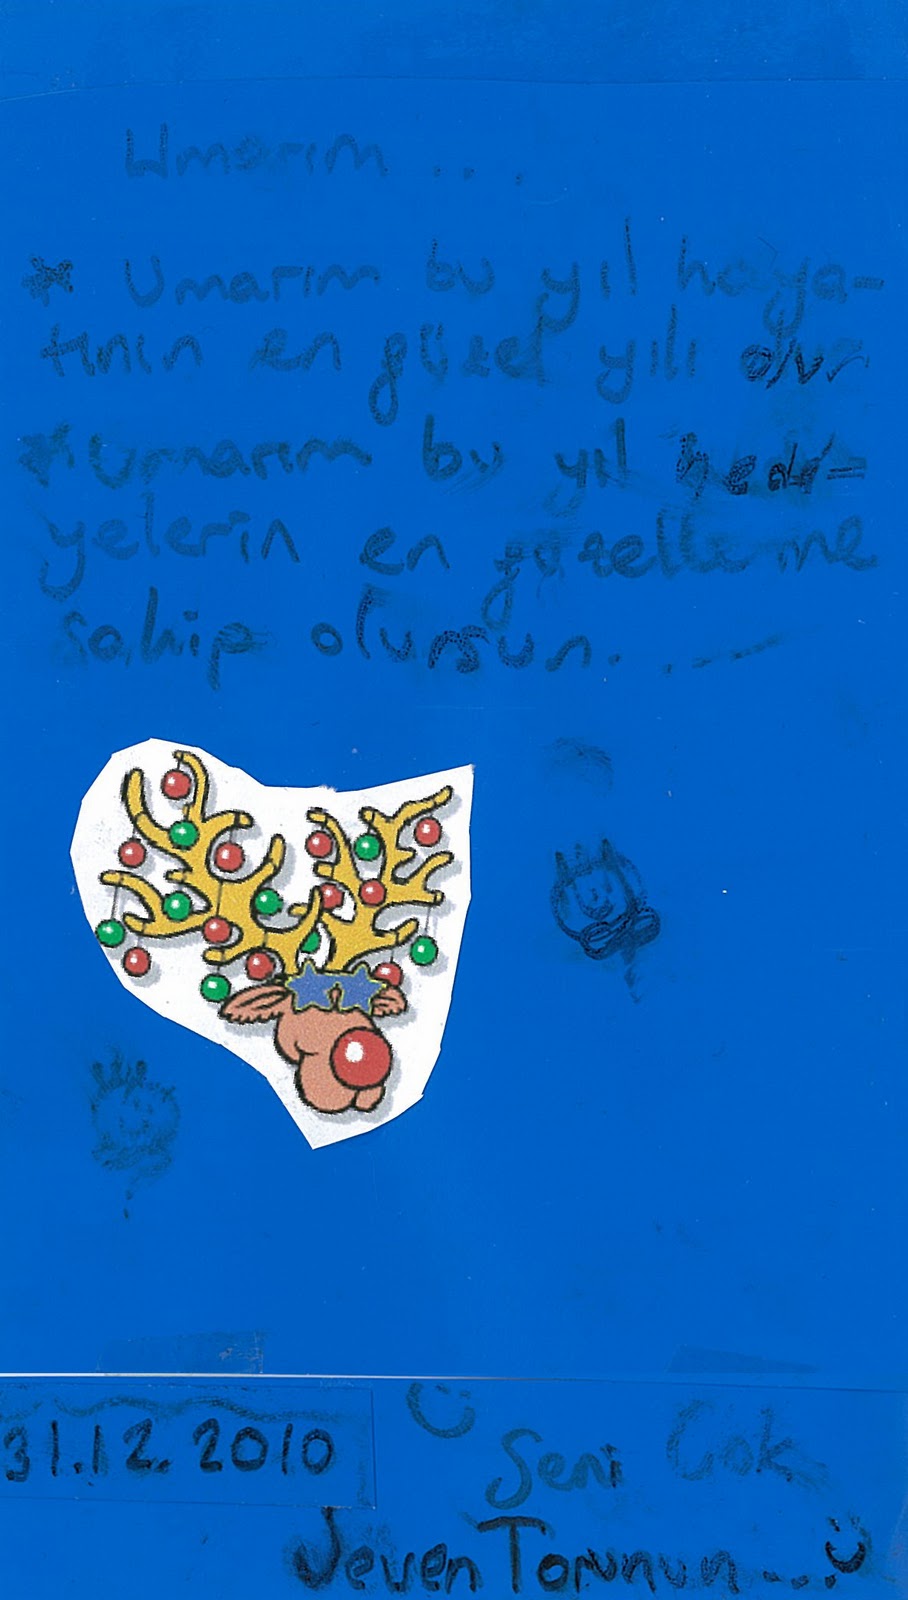 Umarım ...
* Umarım bu yıl haya-
tının en güzel yılı olur
* Umarım bu yıl hedi-
yelerin en güzellerine
sahip olursun...
31.12.2010
Seni Çok
Seven Torunun...